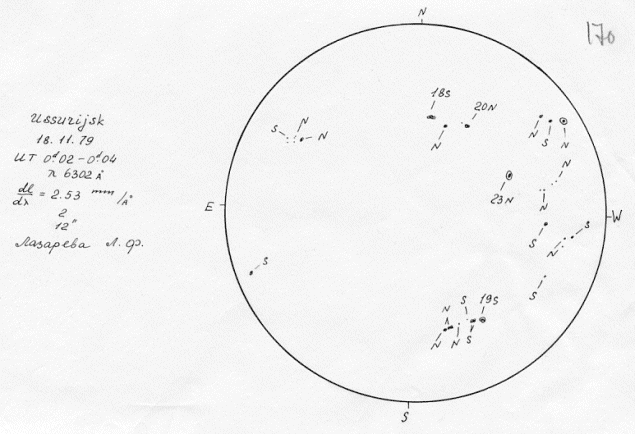 N
170
18S
20N
Ussurijsk
S N
N
N
N S N
18.11.79
UT 0ᵈ.02 – 0ᵈ.04
N
λ 6302 Å
dl/dλ = 2.53 mm/Å
23N
N
E
W
2
12"
S
S
N
Лазарева Л. Ф.
S
S
N S 19S
N N S
S